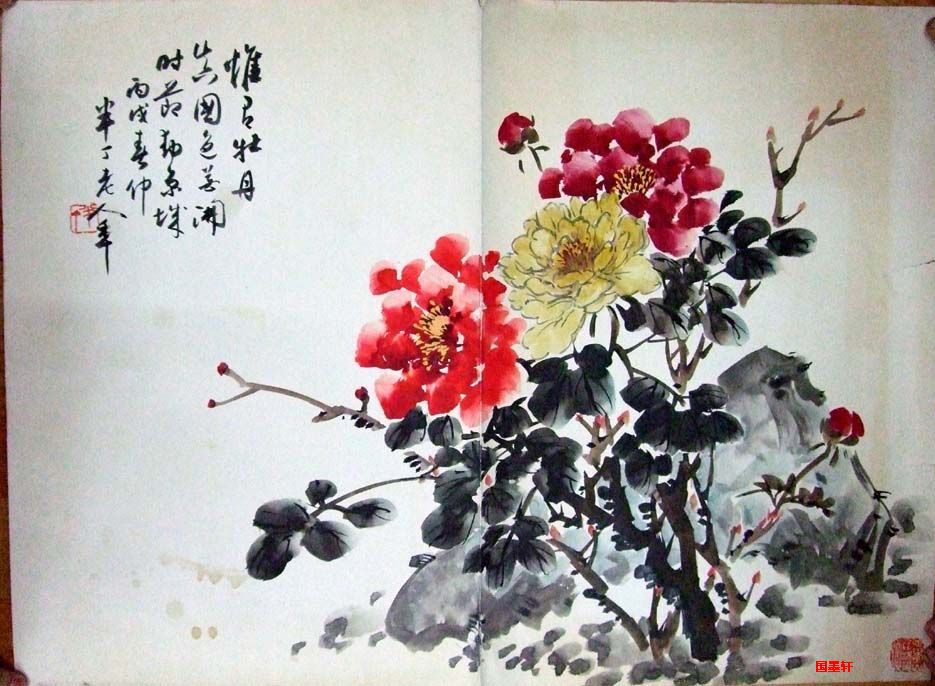 惟有牡丹
真國色花開
时節動京城
丙戌春仲
半丁老人年
国墨轩